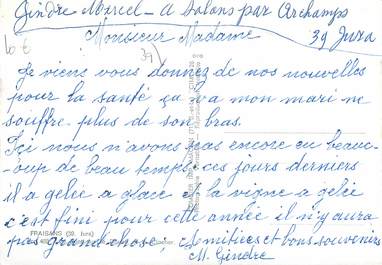 Gindre Marcel - à Salans par Archamps
39 Jura
10 €
39)
Monsieur Madame
Je viens vous donnez de nos nouvelles
pour la santé ça va mon mari ne
souffre plus de son bras.
Ici nous n'avons pas encore eu beauc-
oup de beau temps ces jours derniers
il a gelée a glace et la vigne a gelée
c'est fini pour cette année il n'y aura
pas grand chose; Amitiées et bons souvenirs
M. Gindre
FRAISANS (39. Jura)